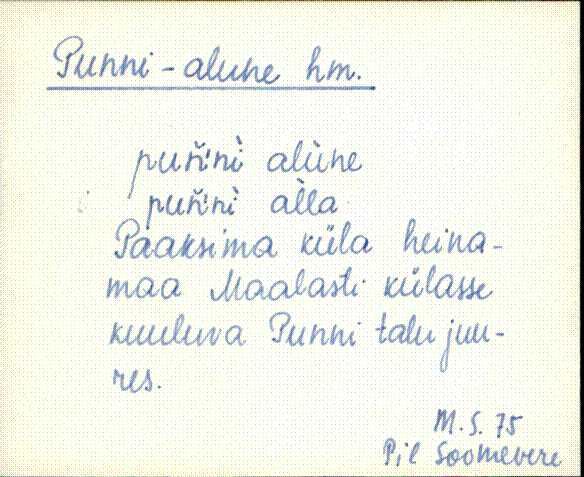 Punni-alune hm.
puň̀nì alùne
puň̀nì al̀la
Paaksima küla heina-
maa Maalasti külasse
kuuluva Punni talu juu-
res.
M. S. 75
Pil Soomevere